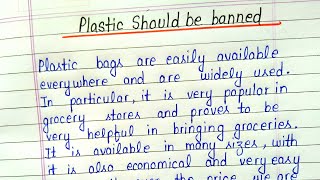 Plastic Should be banned
Plastic bags are easily available
everywhere and are widely used.
In particular, it is very popular in
grocery stores and proves to be
very helpful in bringing groceries.
It is available in many sizes, with
it is also economical and very easy
the price, we are